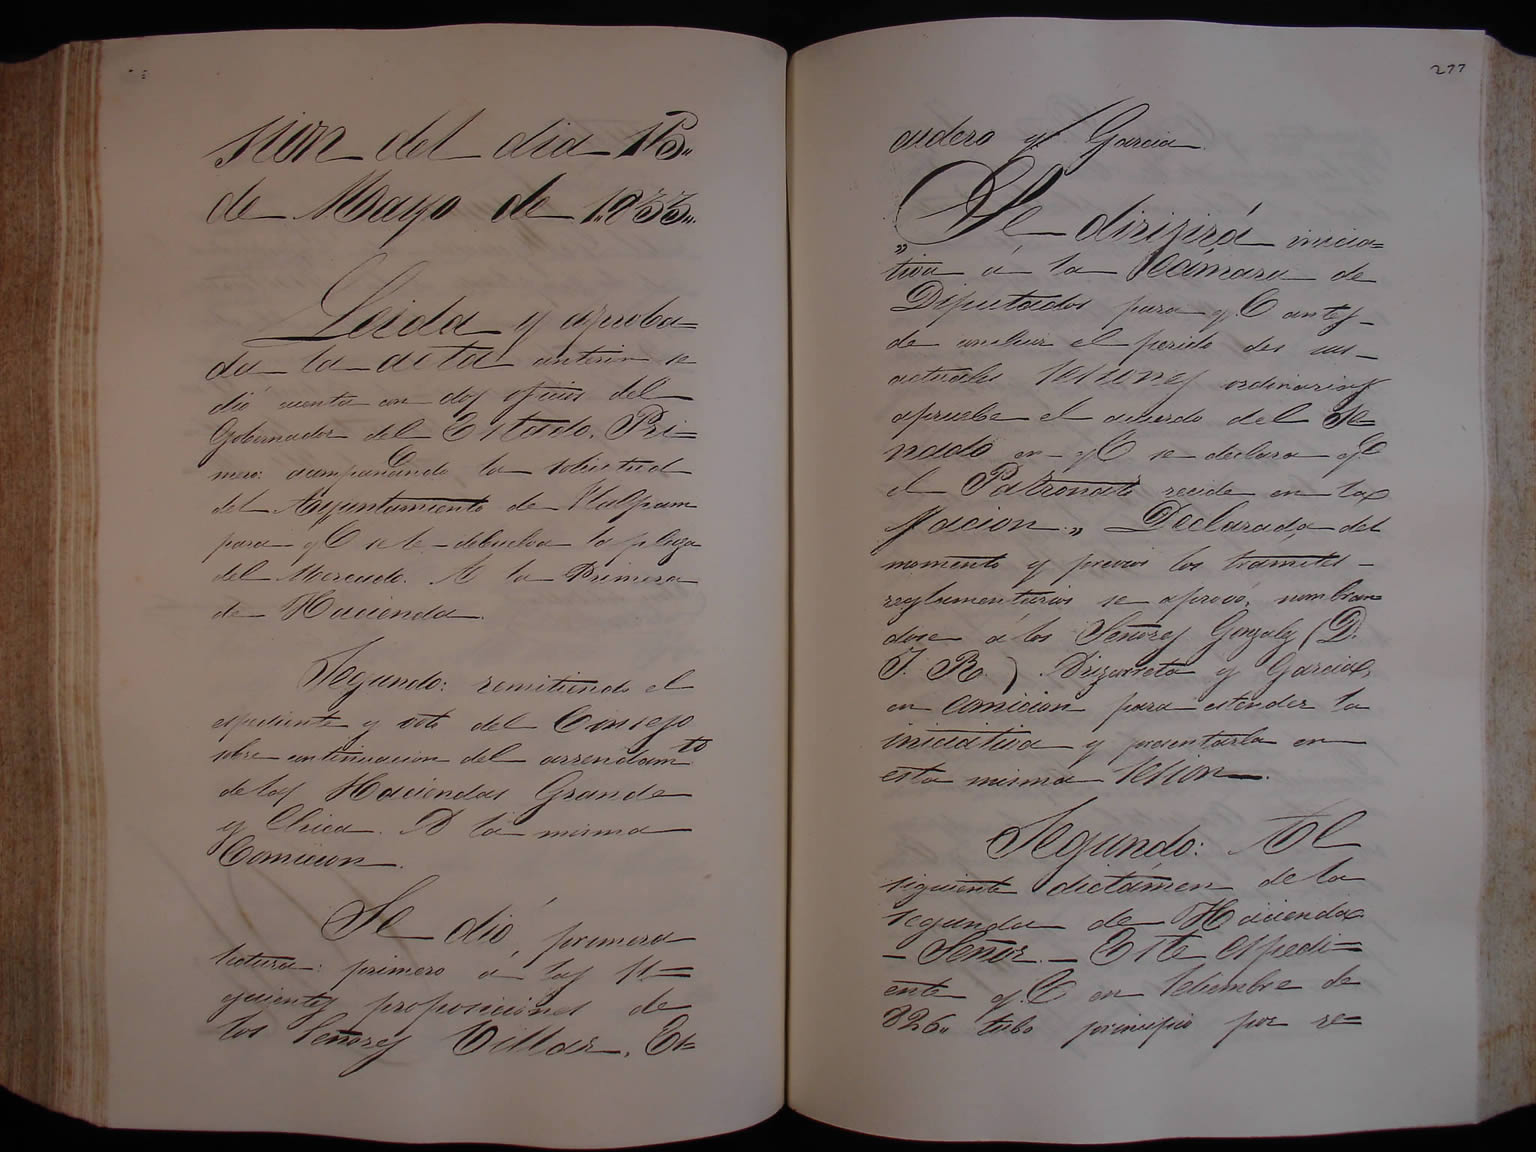 sion del dia 15„
de Mayo de 1.833„.
Leida y aproba=
da la acta anterior se
dió cuenta con dos oficios del
Gobernador del Estado. Pri=
mero: acompañando la solicitud
del Ayuntamiento de Tlalpam
para qE se le debuelva la plaza
del Mercado. A la Primera
de Hacienda.
Segundo: remitiendo el
espediente y voto del Consejo
sobre continuacion del arrendamto
de las Haciendas Grande
y Chica. A la misma
Comicion.
Se dió primera
lectura: primero á las si=
guientes proposiciones de
los Señores Villar, Es=
277
cudero y Garcia
„Se dirijirá inicia=
tiva á la Cámara de
Diputados para q.E antes
de concluir el periodo des sus
actuales sesiones ordinarias
apruebe el acuerdo del Se=
nado en qE se declara q.E
el Patronato recide en la
Nacion.„ Declarada del
momento y previos los tramites
reglamentarios se aprovó, nombran=
dose á los Señores Gonzalez (D.
J. R.) Vizarreta y Garcia,
en comicion para estender la
iniciativa y presentarla en
esta misma sesion.
Segundo: Al
siguiente dictamen de la
segunda de Hacienda
Señor. Este espedi=
ente q.E en Setiembre de
826„ tubo principio por re=